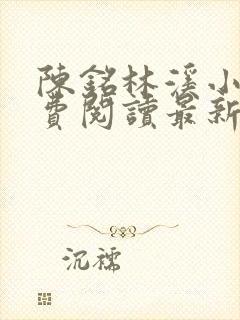 陳銘林溪小
費閱讀最新
沉穤